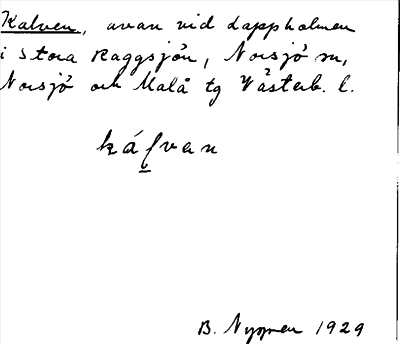 Kalven, avan vid Lappholmen
i Stora Raggsjön, Norsjö sn,
Norsjö och Malå tg Västerb. l.
káḽvan
B. Nygren 1929